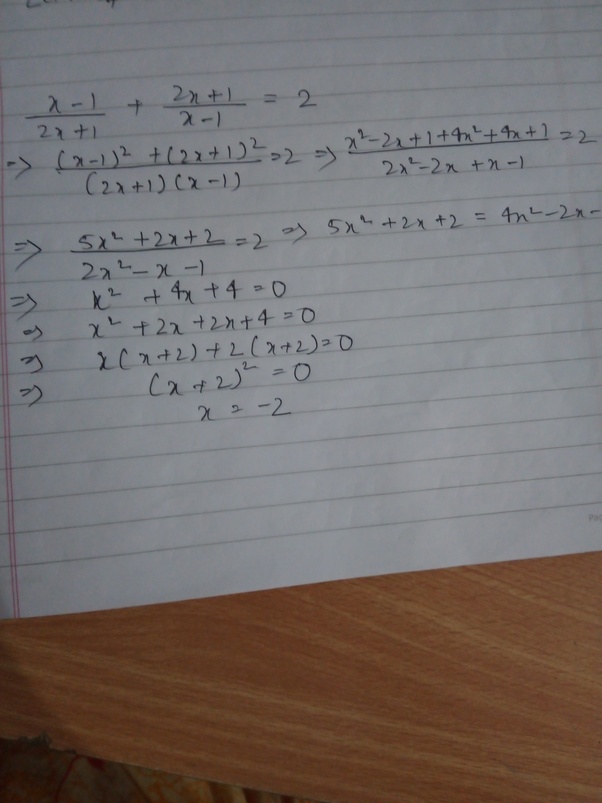 x-1/2x+1 + 2x+1/x-1 = 2
⇒ (x-1)² + (2x+1)²/(2x+1)(x-1) = 2 ⇒ x²-2x+1+4x²+4x+1/2x²-2x+x-1 = 2
⇒ 5x²+2x+2/2x²-x-1 = 2 ⇒ 5x²+2x+2 = 4x²-2x-
⇒ x² + 4x + 4 = 0
⇒ x² + 2x + 2x + 4 = 0
⇒ x(x+2) + 2(x+2) = 0
⇒ (x+2)² = 0
x = -2